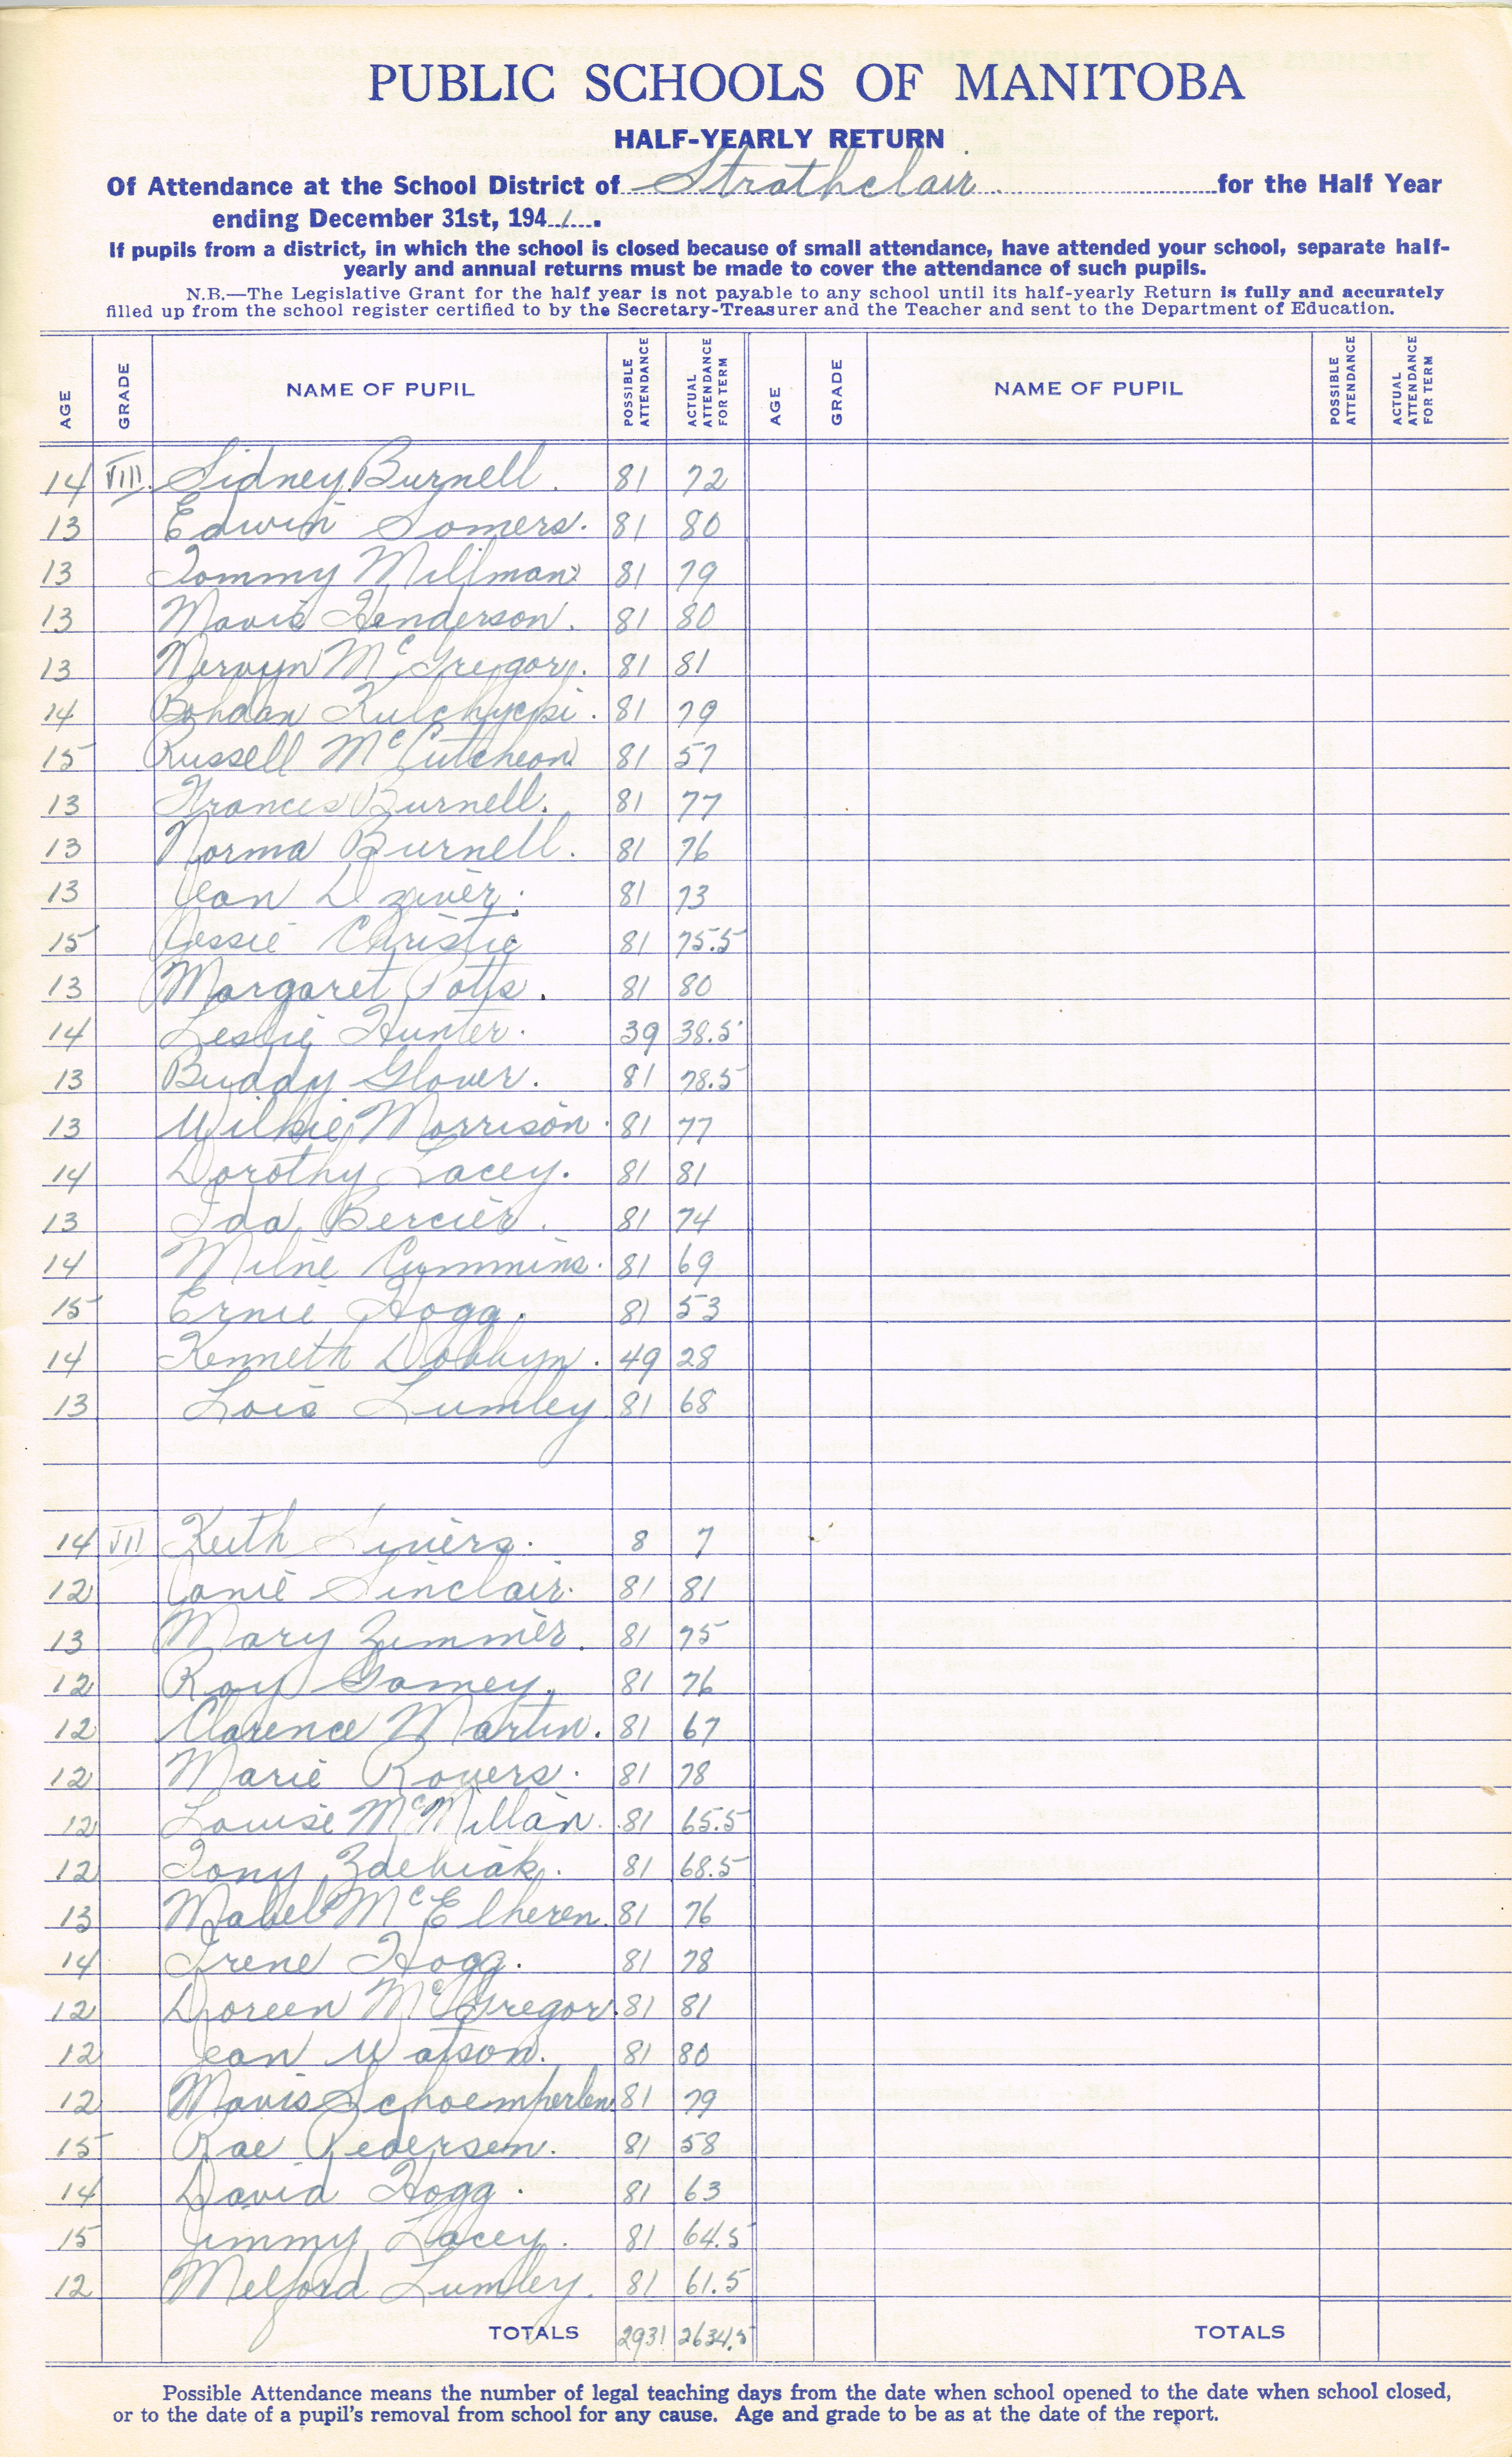 PUBLIC SCHOOLS OF MANITOBA
HALF-YEARLY RETURN
Of Attendance at the School District of Strathclair for the Half Year
ending December 31st, 1941.
If pupils from a district, in which the school is closed because of small attendance, have attended your school, separate half-
yearly and annual returns must be made to cover the attendance of such pupils.
N.B.—The Legislative Grant for the half year is not payable to any school until its half-yearly Return is fully and accurately
filled up from the school register certified to by the Secretary-Treasurer and the Teacher and sent to the Department of Education.
AGE GRADE NAME OF PUPIL POSSIBLE ATTENDANCE ACTUAL ATTENDANCE FOR TERM AGE GRADE NAME OF PUPIL POSSIBLE ATTENDANCE ACTUAL ATTENDANCE FOR TERM
14 VIII. Sidney Burnell. 81 72
13 Edwin Somers. 81 80
13 Tommy Millman 81 79
13 Mavis Henderson. 81 80
13 Mervyn McGregor. 81 81
14 Bohdan 81 79
15 Russell McCutcheon 81 57
13 Frances Burnell. 81 77
13 Norma Burnell. 81 76
13 Jean 81 73
15 Jessie Christie 81 75.5
13 Margaret Potts. 81 80
14 Leslie Hunter. 39 38.5
13 Buddy Glover. 81 78.5
13 Wilkie Morrison. 81 77
14 Dorothy Lacey. 81 81
13 Ida Bercier. 81 74
14 Milne Cummins. 81 69
15 Ernie Hogg. 81 53
14 Kenneth Dobbyn. 49 28
13 Lois Lumley 81 68
14 VII Keith 8 7
12 Janie Sinclair. 81 81
13 Mary Zimmer. 81 75
12 Roy Gamey. 81 76
12 Clarence Martin. 81 67
12 Marie Rovers. 81 78
12 Louise McMillan. 81 65.5
12 Tony 81 68.5
13 Mabel McElheren. 81 76
14 Irene Hogg. 81 78
12 Doreen McGregor. 81 81
12 Jean Watson. 81 80
12 Mavis Schoemperlen 81 79
15 Rae Pedersen. 81 58
14 David Hogg. 81 63
15 Jimmy Lacey. 81 64.5
12 Melford Lumley. 81 61.5
TOTALS 2931 2634.5 TOTALS
Possible Attendance means the number of legal teaching days from the date when school opened to the date when school closed,
or to the date of a pupil's removal from school for any cause. Age and grade to be as at the date of the report.